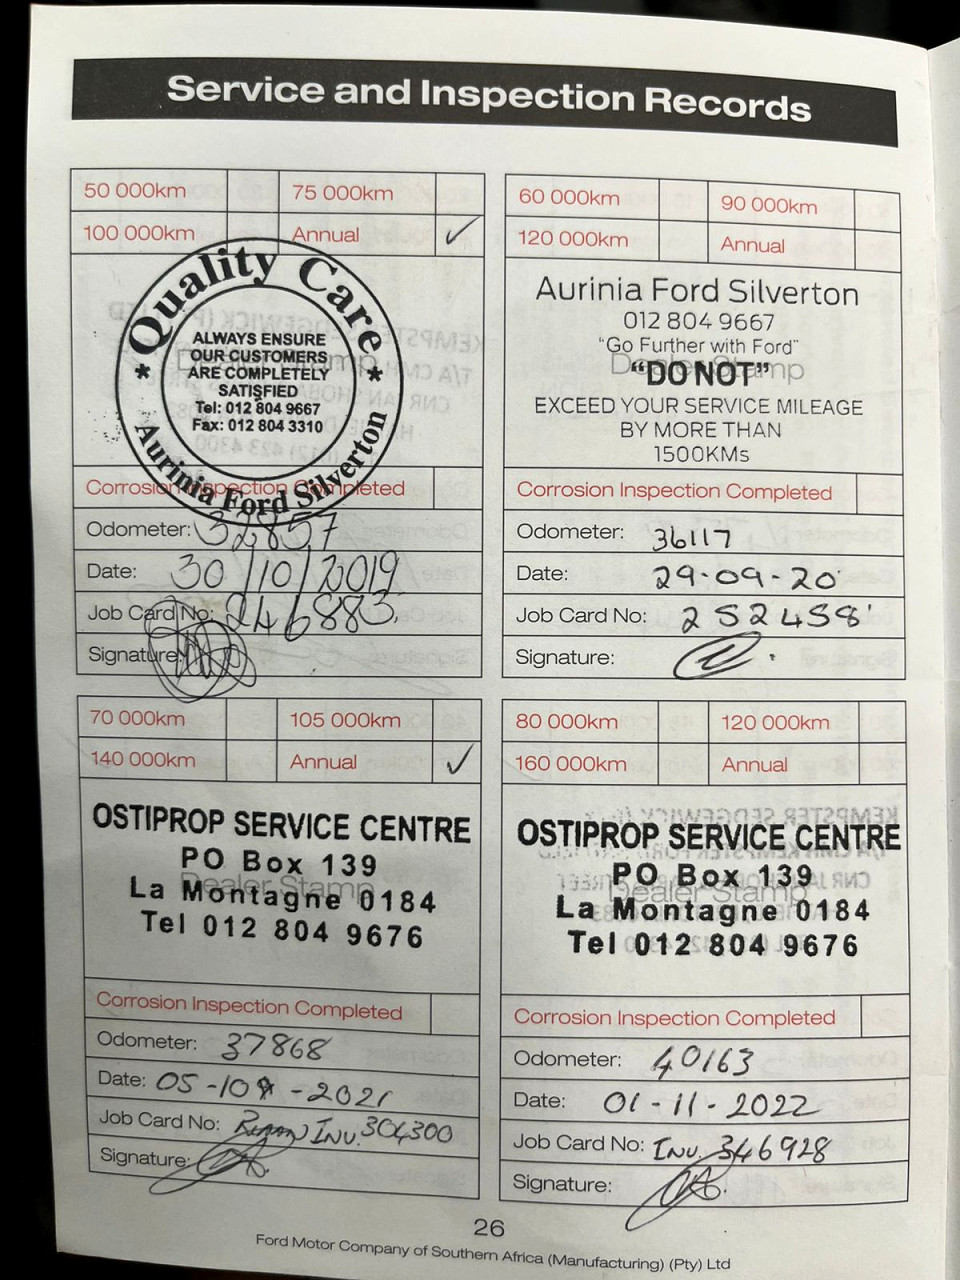 Service and Inspection Records
50 000km 75 000km
100 000km Annual ✓
Quality Care
ALWAYS ENSURE
OUR CUSTOMERS
ARE COMPLETELY
SATISFIED
Tel: 012 804 9667
Fax: 012 804 3310
Aurinia Ford Silverton
Dealer Stamp
Corrosion Inspection Completed
Odometer: 32857
Date: 30/10/2019
Job Card No: 246883
Signature:
60 000km 90 000km
120 000km Annual
Aurinia Ford Silverton
012 804 9667
“Go Further with Ford”
Dealer Stamp
“DO NOT”
EXCEED YOUR SERVICE MILEAGE
BY MORE THAN
1500KMs
Corrosion Inspection Completed
Odometer: 36117
Date: 29-09-20
Job Card No: 252458
Signature:
70 000km 105 000km
140 000km Annual ✓
OSTIPROP SERVICE CENTRE
PO Box 139
Dealer Stamp
La Montagne 0184
Tel 012 804 9676
Corrosion Inspection Completed
Odometer: 37868
Date: 05-10-2021
Job Card No: INV. 304300
Signature:
80 000km 120 000km
160 000km Annual
OSTIPROP SERVICE CENTRE
PO Box 139
Dealer Stamp
La Montagne 0184
Tel 012 804 9676
Corrosion Inspection Completed
Odometer: 40163
Date: 01-11-2022
Job Card No: INV. 346928
Signature:
26
Ford Motor Company of Southern Africa (Manufacturing) (Pty) Ltd